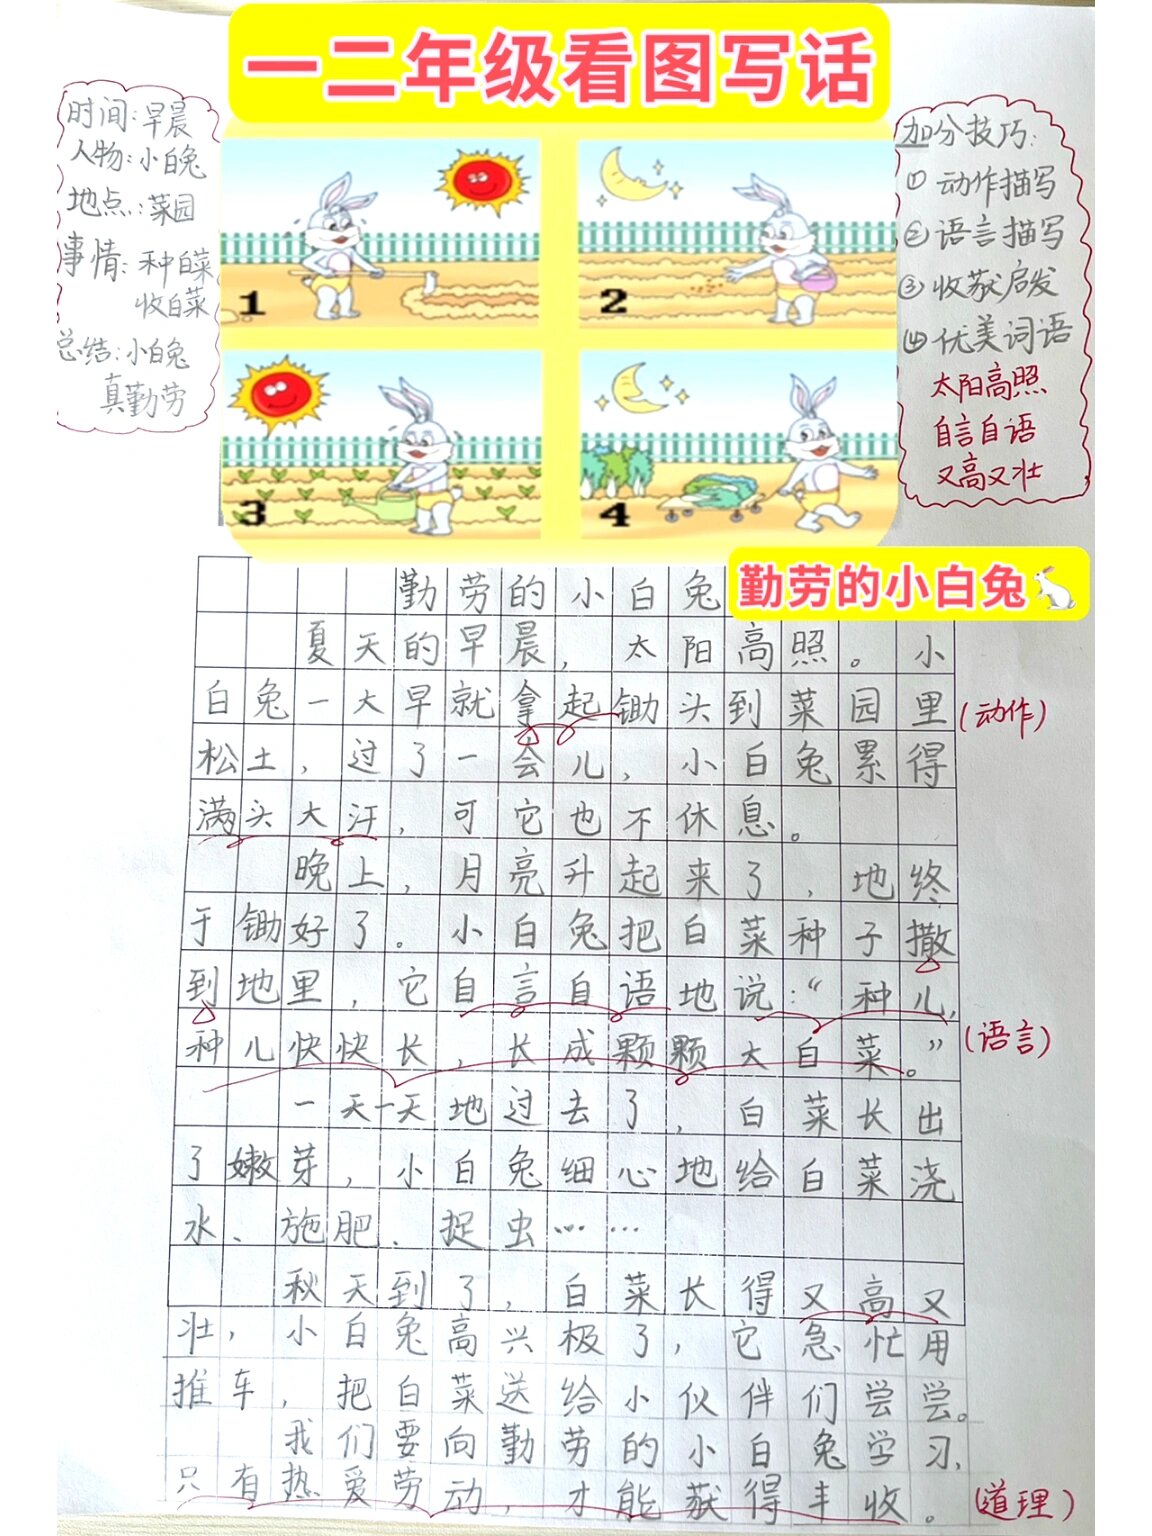 一二年级看图写话
时间:早晨
人物:小白兔
地点:菜园
事情:种白菜
收白菜
总结:小白兔
真勤劳
加分技巧:
①动作描写
②语言描写
③收获启发
④优美词语
太阳高照
自言自语
又高又壮
1
2
3
4
勤劳的小白兔
勤劳的小白兔
夏天的早晨，太阳高照。小
白兔一大早就拿起锄头到菜园里
(动作)
松土，过了一会儿，小白兔累得
满头大汗，可它也不休息。
晚上，月亮升起来了，地终
于锄好了。小白兔把白菜种子撒
到地里，它自言自语地说:“种儿，
种儿快快长，长成颗颗大白菜。”
(语言)
一天一天地过去了，白菜长出
了嫩芽，小白兔细心地给白菜浇
水、施肥、捉虫……
秋天到了，白菜长得又高又
壮，小白兔高兴极了，它急忙用
推车，把白菜送给小伙伴们尝尝。
我们要向勤劳的小白兔学习，
只有热爱劳动，才能获得丰收。
(道理)